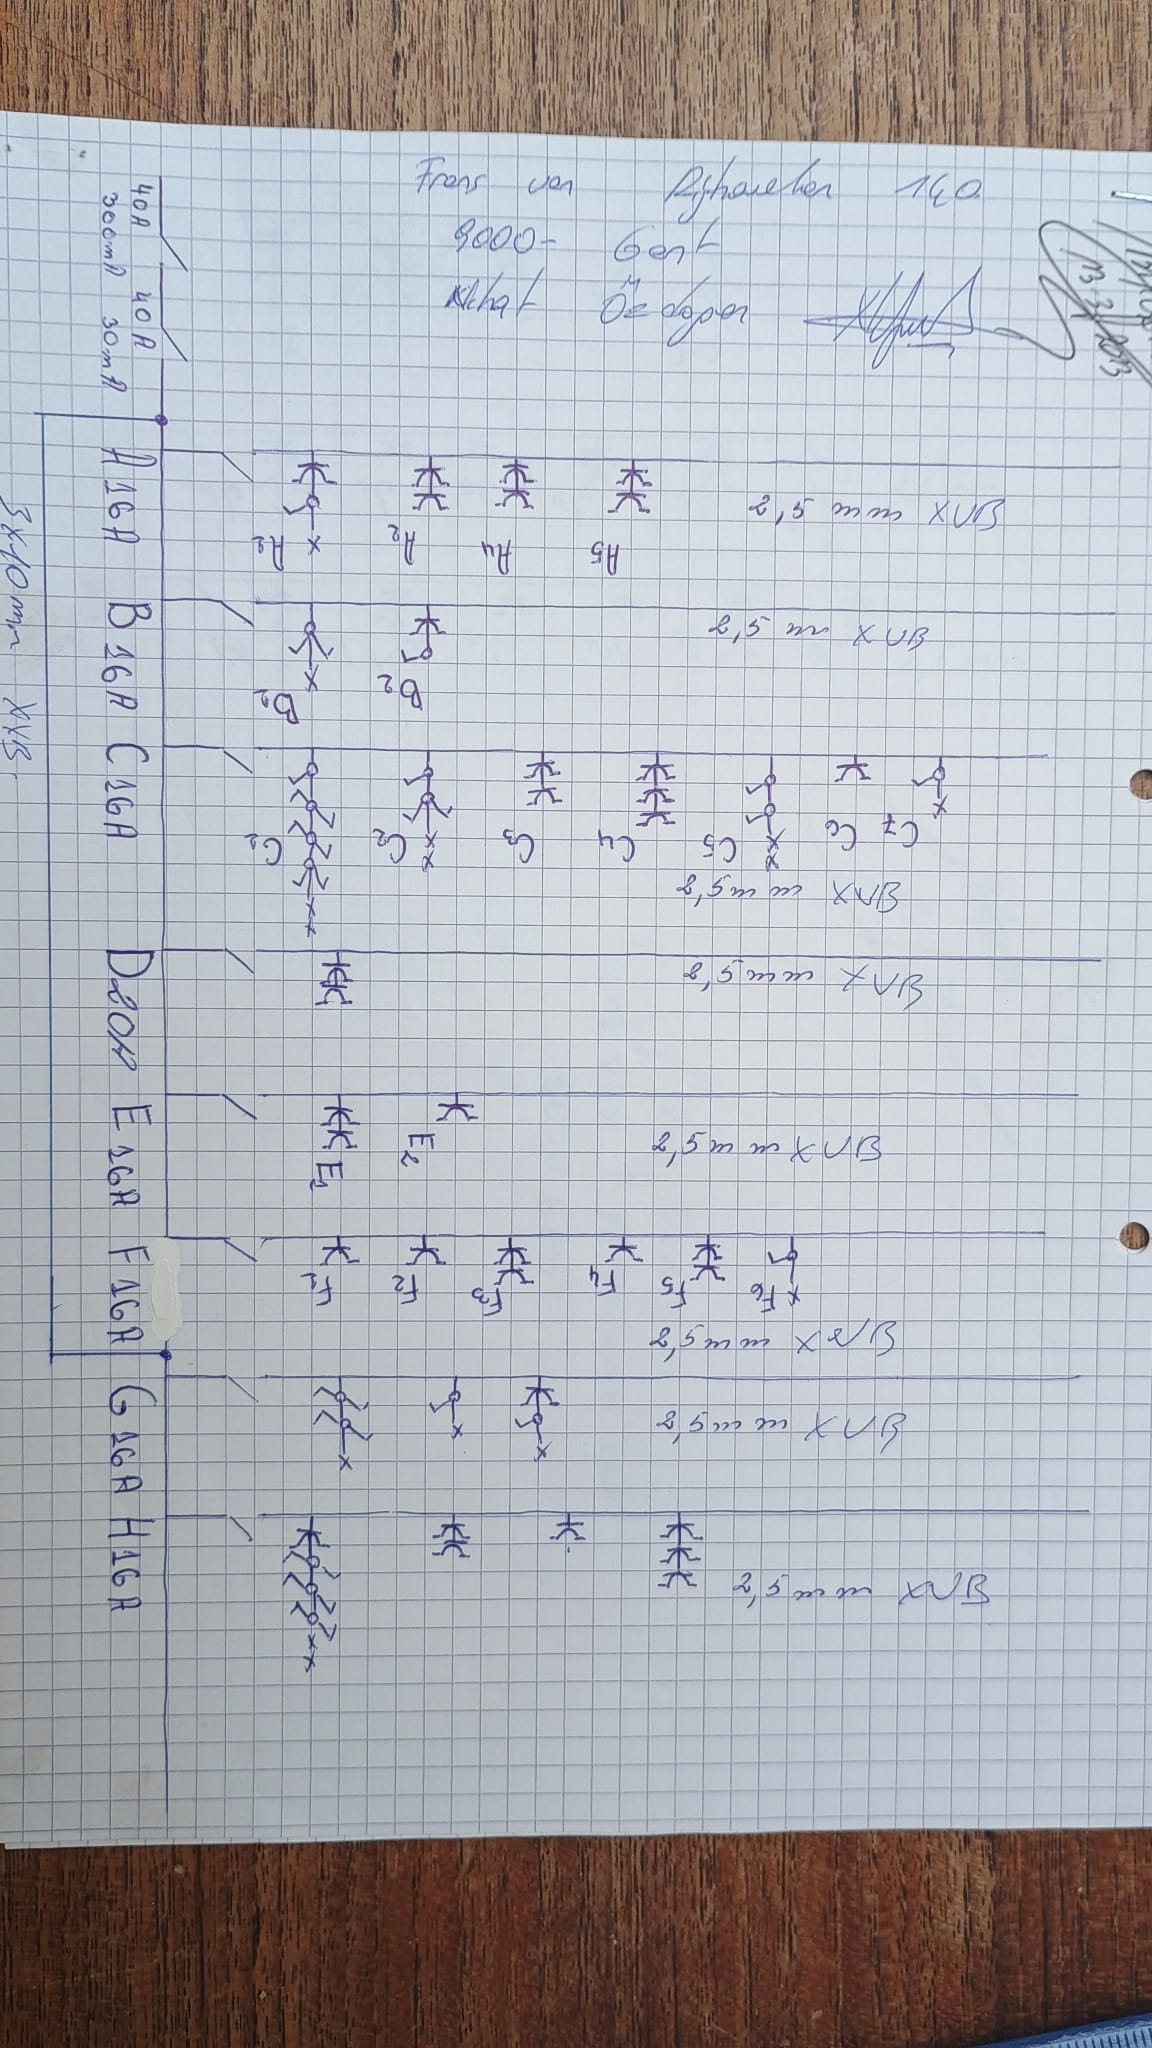 40A 40A
300mA 30mA
Frans van Ryhovelaan 140
9000 - Gent
Nihat Özdogan
A 16A
A2 A2 A4 A5
XVB 2,5 mm
B 16A
B2 B2
XVB 2,5 mm
C 16A
C2 C2 C3 C4 C5 C6 C7
XVB 2,5 mm
D 20A
XVB 2,5 mm
E 16A
E1 E2
XVB 2,5 mm
F 16A
F1 F2 F3 F4 F5 F6
XVB 2,5 mm
G 16A
XVB 2,5 mm
H 16A
XVB 2,5 mm
3x10 mm XVB